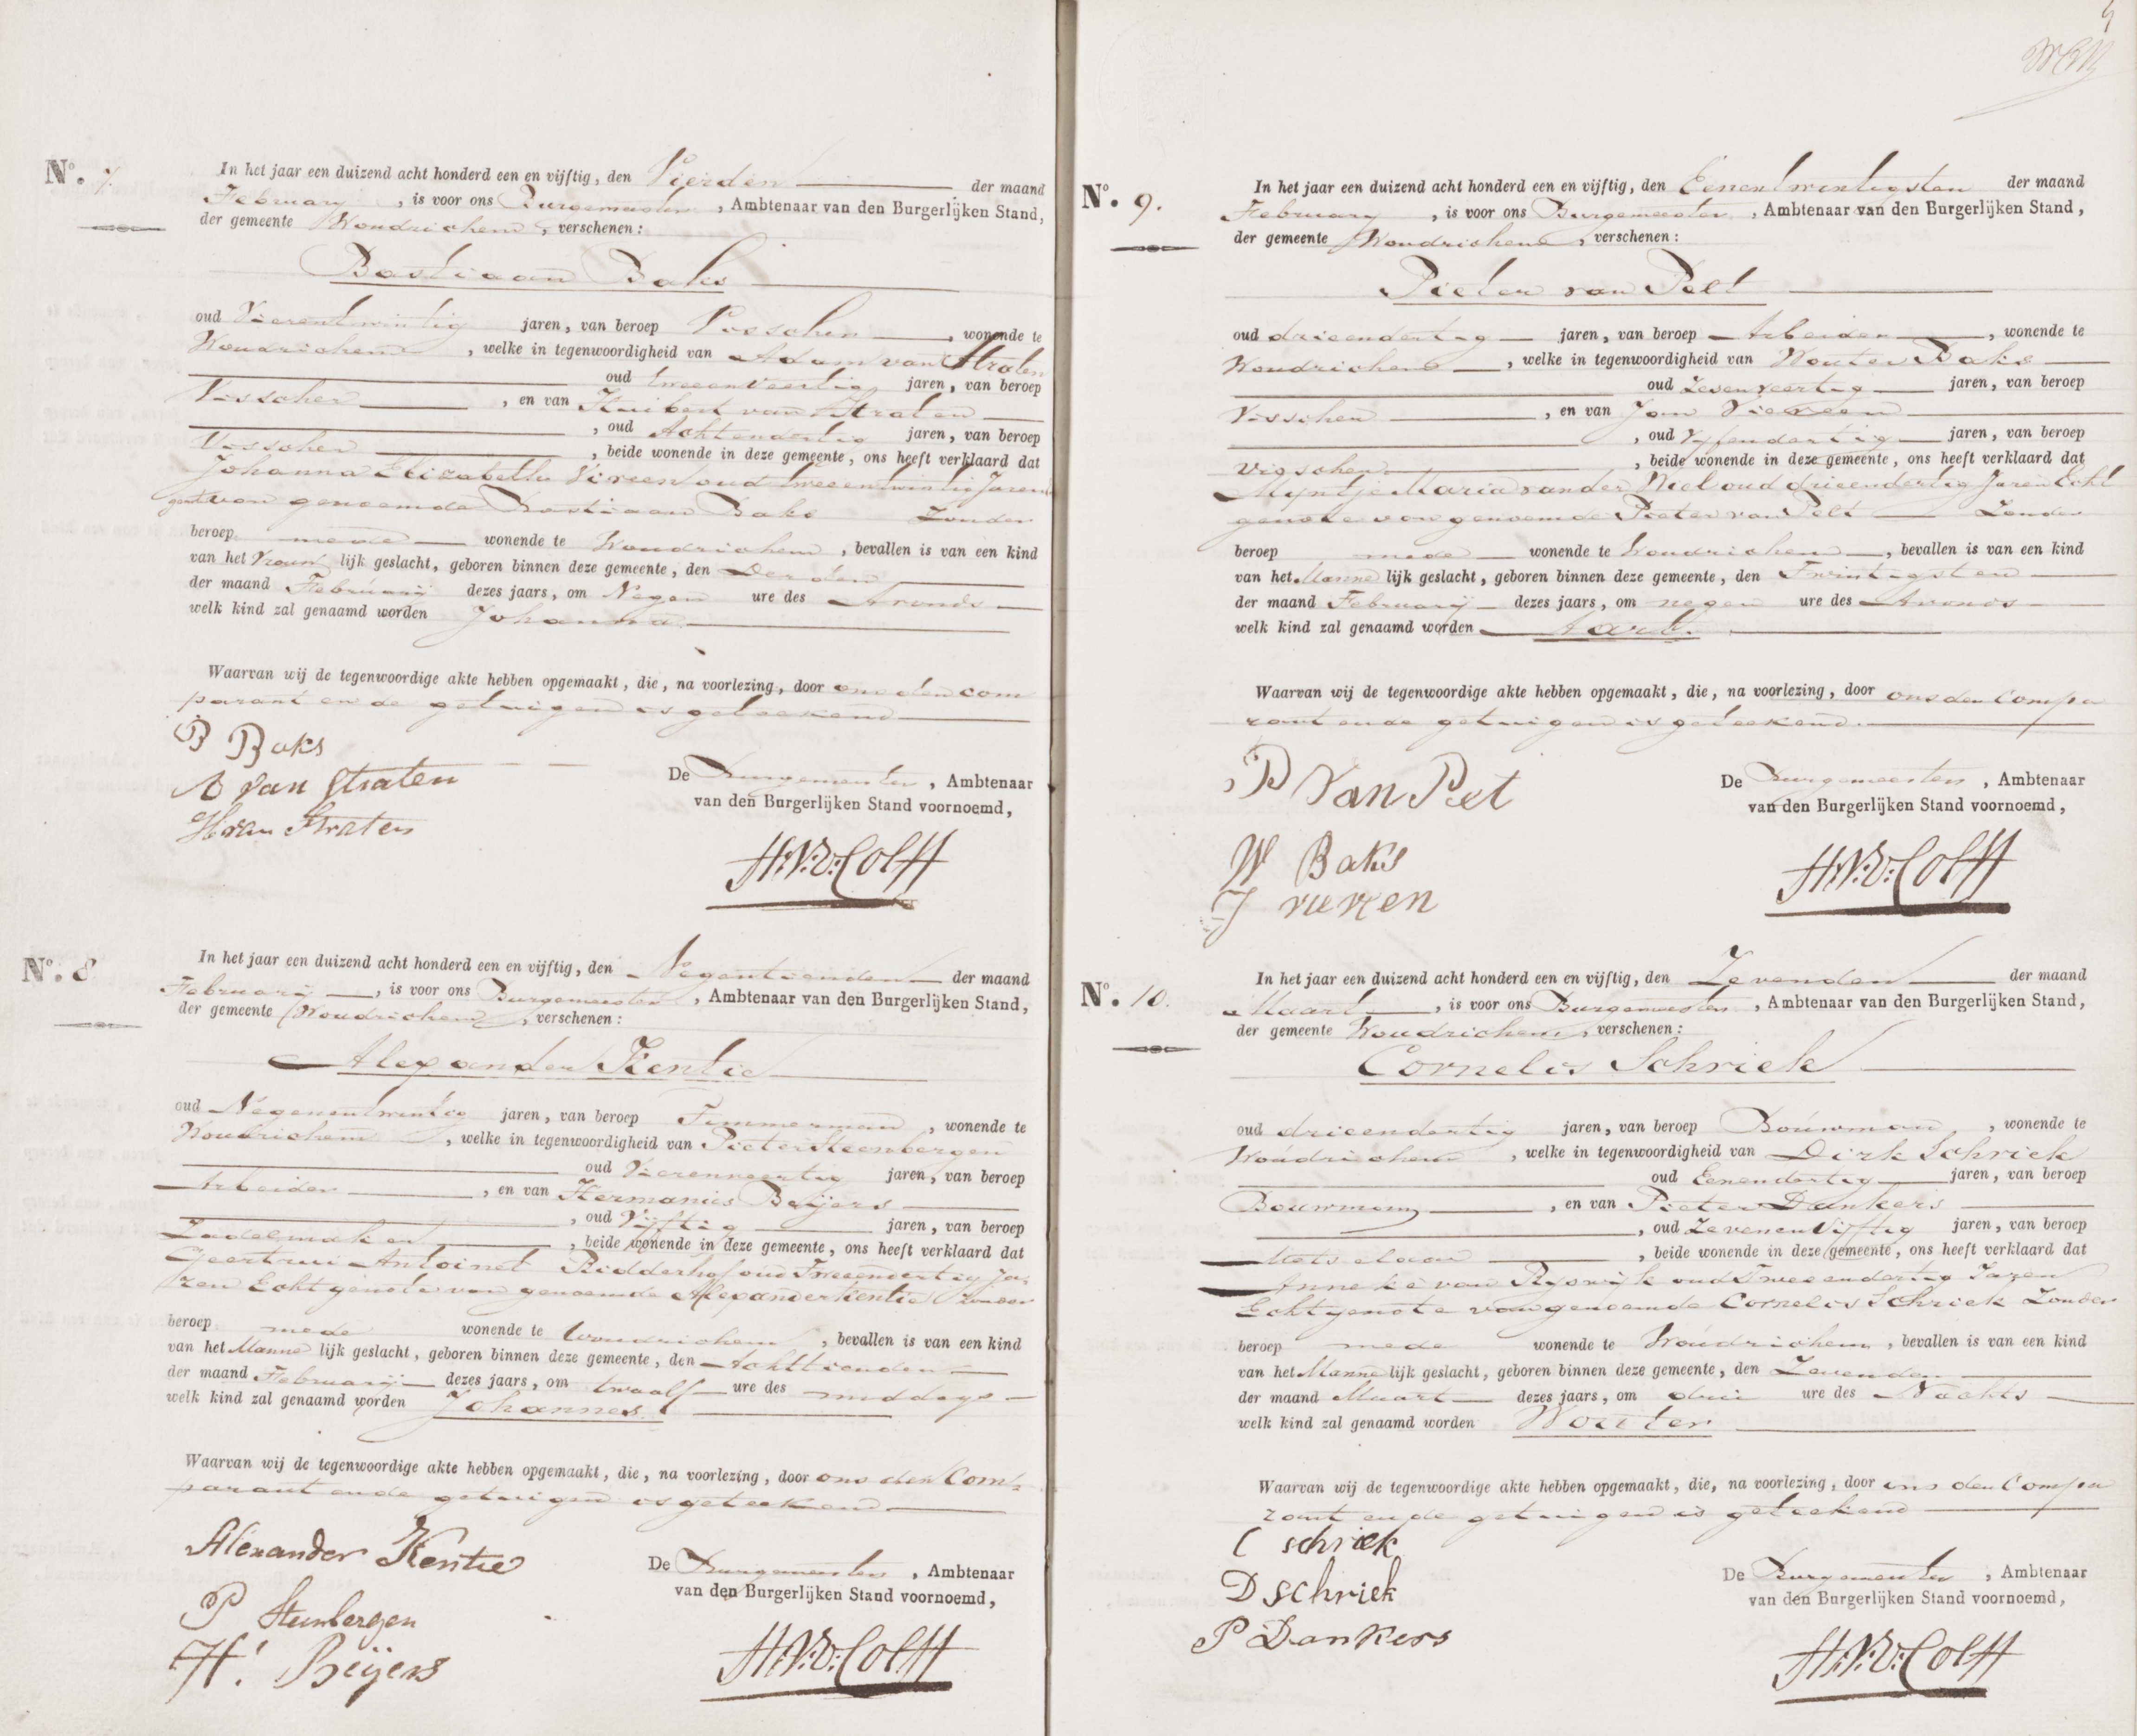 No. 7.
In het jaar een duizend acht honderd een en vijftig, den Vierden der maand
February, is voor ons Burgemeester, Ambtenaar van den Burgerlijken Stand,
der gemeente Woudrichem, verschenen:
Bastiaan Baks
oud Vierentwintig jaren, van beroep Visscher, wonende te
Woudrichem, welke in tegenwoordigheid van Adam van Straten
oud tweeenveertig jaren, van beroep
Visscher, en van Huibert van Straten
, oud Achtendertig jaren, van beroep
Visscher, beide wonende in deze gemeente, ons heeft verklaard dat
Johanna Elizabeth Vireen oud tweeentwintig Jaren
van genoemde Bastiaan Baks Zonder
beroep mede wonende te Woudrichem, bevallen is van een kind
van het Vrouwlijk geslacht, geboren binnen deze gemeente, den Derden
der maand February dezes jaars, om Negen ure des Avonds
welk kind zal genaamd worden Johanna
Waarvan wij de tegenwoordige akte hebben opgemaakt, die, na voorlezing, door ons den com
parant en de getuigen is geteekend
B Baks
A van Straten
H van Straten
De Burgemeester, Ambtenaar
van den Burgerlijken Stand voornoemd,
H:V:D: Colff
No. 8
In het jaar een duizend acht honderd een en vijftig, den Negentienden der maand
February, is voor ons Burgemeester, Ambtenaar van den Burgerlijken Stand,
der gemeente Woudrichem, verschenen:
Alexander Kentie
oud Negenentwintig jaren, van beroep Timmerman, wonende te
Woudrichem, welke in tegenwoordigheid van Pieter Steenbergen
oud Vierenveertig jaren, van beroep
Arbeider, en van Hermanus Beijers
, oud Vijftig jaren, van beroep
Zadelmaker, beide wonende in deze gemeente, ons heeft verklaard dat
Geertrui Antoinet Ridderhof oud Tweeendertig Ja,
ren Echtgenote van genoemde Alexander Kentie Zonder
beroep mede wonende te Woudrichem, bevallen is van een kind
van het Mannelijk geslacht, geboren binnen deze gemeente, den Achttienden
der maand February dezes jaars, om twaalf ure des middags
welk kind zal genaamd worden Johannes
Waarvan wij de tegenwoordige akte hebben opgemaakt, die, na voorlezing, door ons den Com,
parant en de getuigen is geteekend
Alexander Kentie
P Steenbergen
H: Beijers
De Burgemeester, Ambtenaar
van den Burgerlijken Stand voornoemd,
H:V:D: Colff
No. 9.
In het jaar een duizend acht honderd een en vijftig, den Eenentwintigsten der maand
February, is voor ons Burgemeester, Ambtenaar van den Burgerlijken Stand,
der gemeente Woudrichem, verschenen:
Pieter van Pelt
oud drieendertig jaren, van beroep Arbeider, wonende te
Woudrichem, welke in tegenwoordigheid van Wouter Baks
oud Zevenveertig jaren, van beroep
Visscher, en van Jan Viereen
, oud Vyfendertig jaren, van beroep
Visscher, beide wonende in deze gemeente, ons heeft verklaard dat
Myntje Maria van der Niel oud drieendertig Jaren Echt
genote van genoemde Pieter van Pelt Zonder
beroep mede wonende te Woudrichem, bevallen is van een kind
van het Mannelijk geslacht, geboren binnen deze gemeente, den Twintigsten
der maand February dezes jaars, om negen ure des Avonds
welk kind zal genaamd worden Aart.
Waarvan wij de tegenwoordige akte hebben opgemaakt, die, na voorlezing, door ons den Compa
rant en de getuigen is geteekend.
P van Pelt
W Baks
J vieren
De Burgemeester, Ambtenaar
van den Burgerlijken Stand voornoemd,
H:V:D: Colff
No. 10.
In het jaar een duizend acht honderd een en vijftig, den Zevenden der maand
Maart, is voor ons Burgemeester, Ambtenaar van den Burgerlijken Stand,
der gemeente Woudrichem, verschenen:
Cornelis Schriek
oud drieendertig jaren, van beroep Bouwman, wonende te
Woudrichem, welke in tegenwoordigheid van Dirk Schriek
oud Eenendertig jaren, van beroep
Bouwman, en van Pieter Dankers
, oud Zevenenvijftig jaren, van beroep
Metselaar, beide wonende in deze gemeente, ons heeft verklaard dat
Anneke van Ryswijk oud Tweeendertig Jaren
Echtgenote van genoemde Cornelis Schriek Zonder
beroep mede wonende te Woudrichem, bevallen is van een kind
van het Mannelijk geslacht, geboren binnen deze gemeente, den Zevenden
der maand Maart dezes jaars, om drie ure des Nachts
welk kind zal genaamd worden Wouter
Waarvan wij de tegenwoordige akte hebben opgemaakt, die, na voorlezing, door ons den Compa
rant en de getuigen is geteekend
C schriek
D schriek
P Dankers
De Burgemeester, Ambtenaar
van den Burgerlijken Stand voornoemd,
H:V:D: Colff